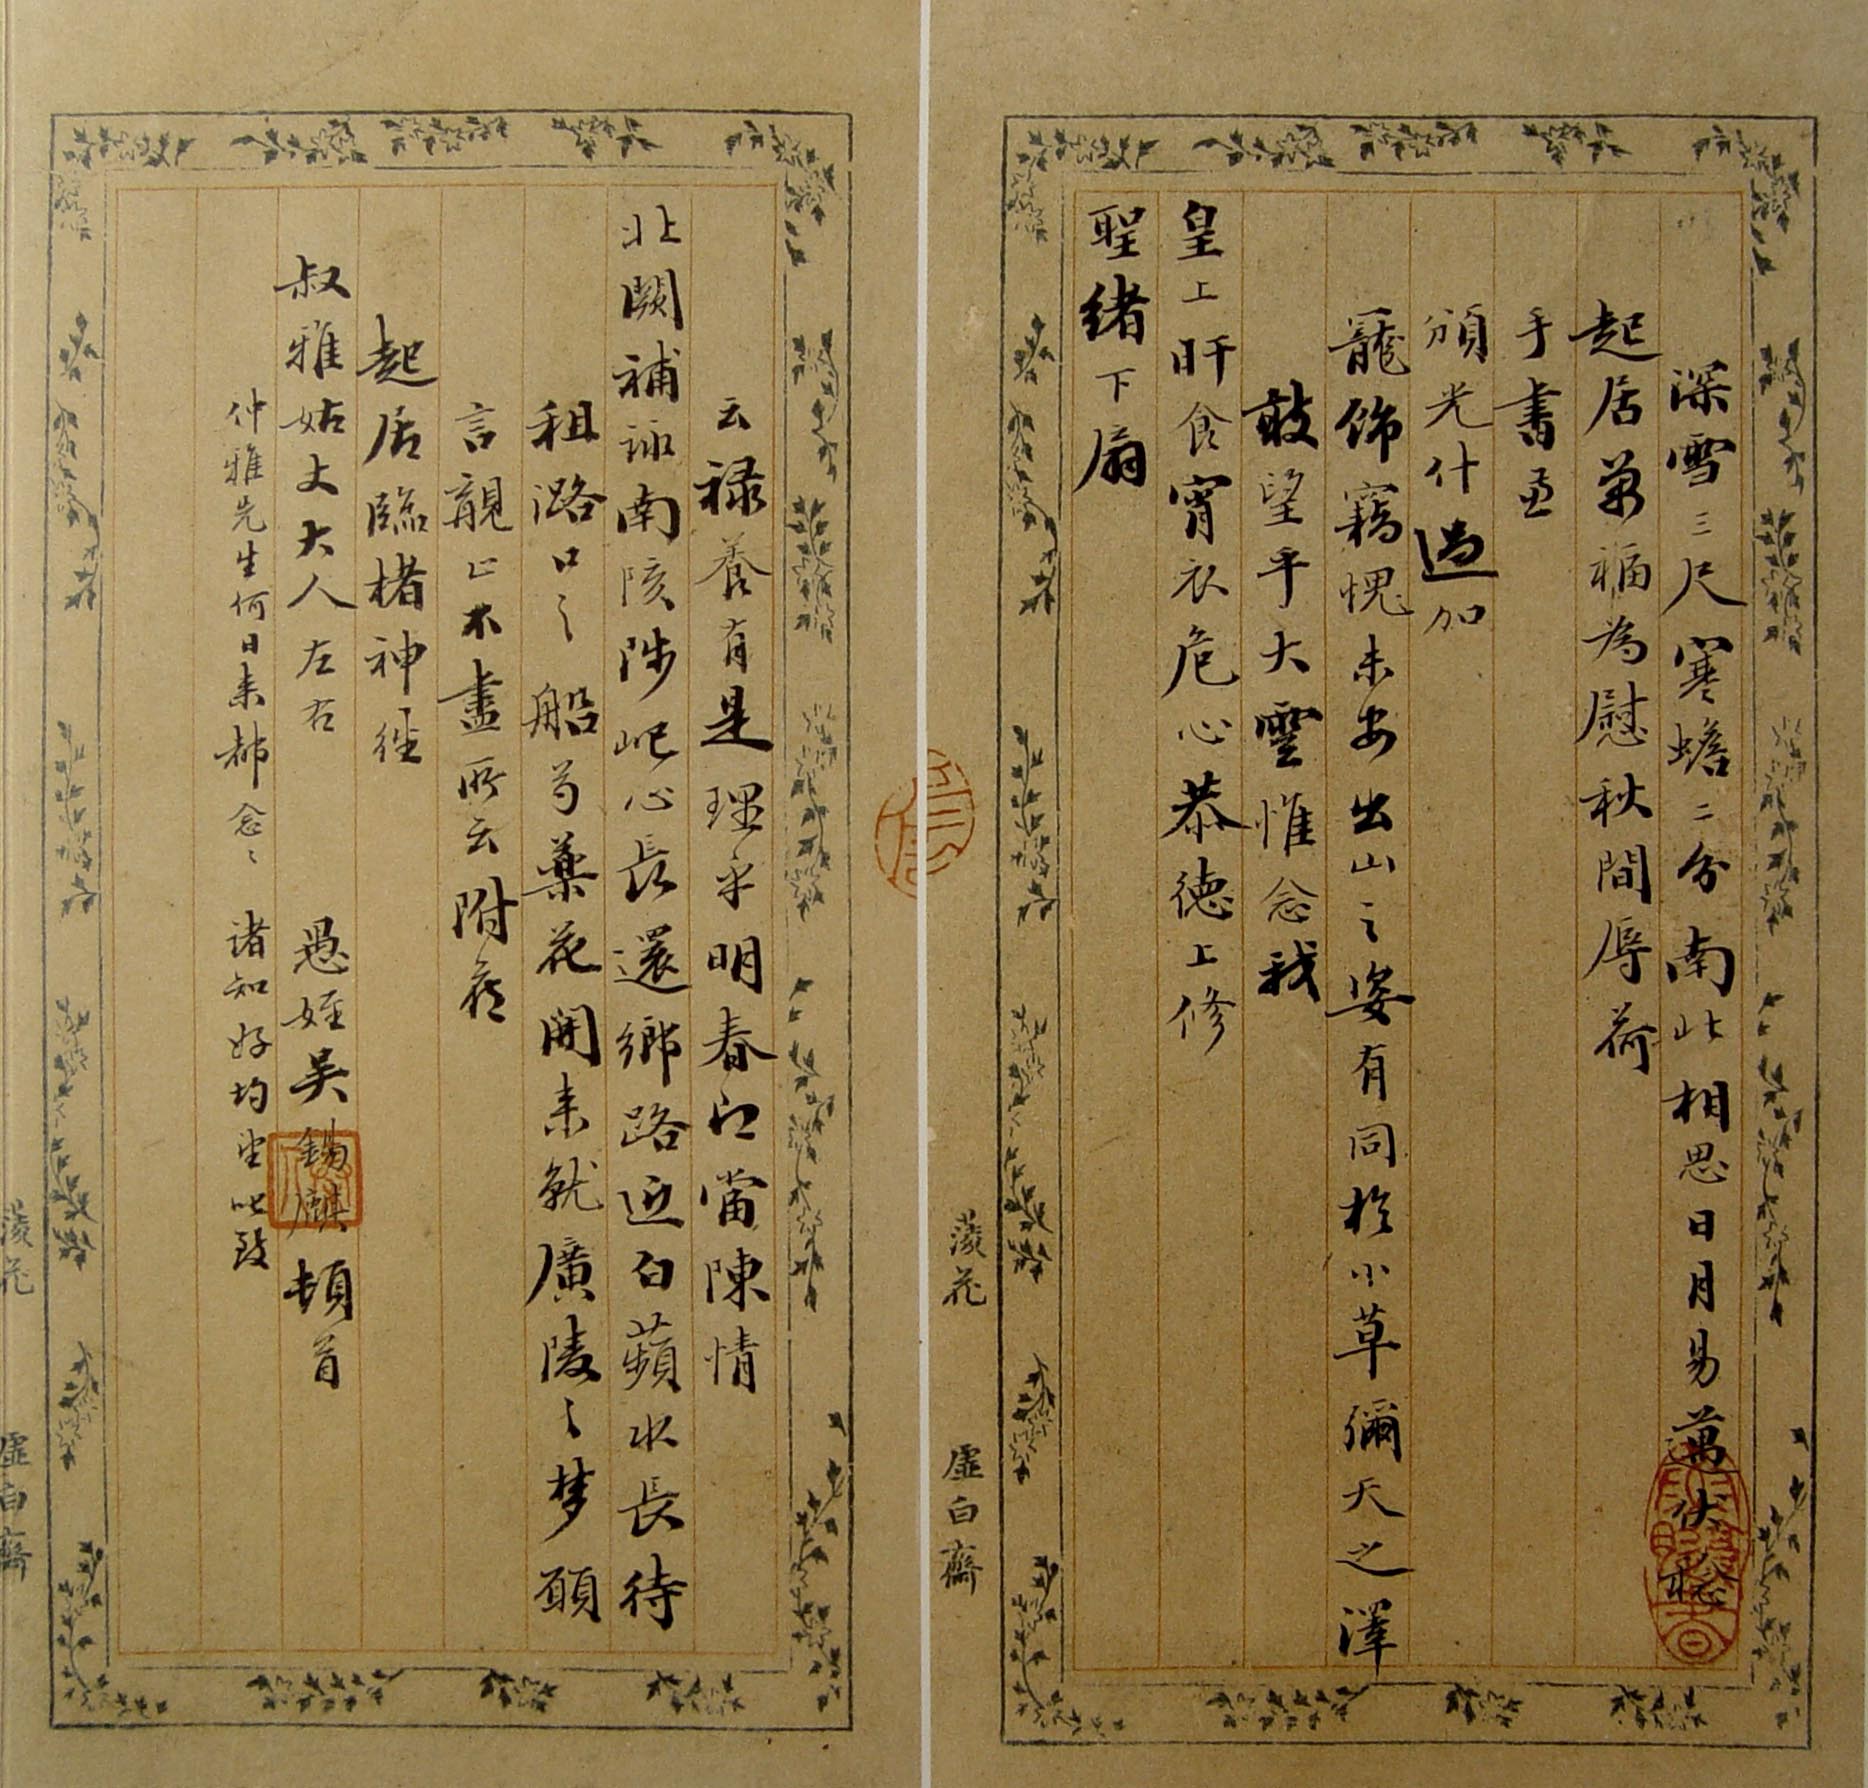 深雪三尺寒蟾二分南北相思日月易萬伏稔
起居萬福為慰秋間辱荷
手書並
頒光什過加
寵飾竊愧未安出山之姿有同於小草彌天之澤
敢望乎大雲惟念我
皇上旰食宵衣危心恭德上修
聖緒下扇
云祿養有是理乎明春之當陳情
北闕補詠南陔陟屺心長還鄉路近白蘋水長待
租潞口之船芍藥花開來就廣陵之夢願
言親止不盡所云附候
起居臨楮神往
叔雅姑丈大人左右 愚姪吳錫麒頓首
仲雅先生何日來都念念 諸知好均望叱致
蔆花 虛白齋
蔆花 虛白齋